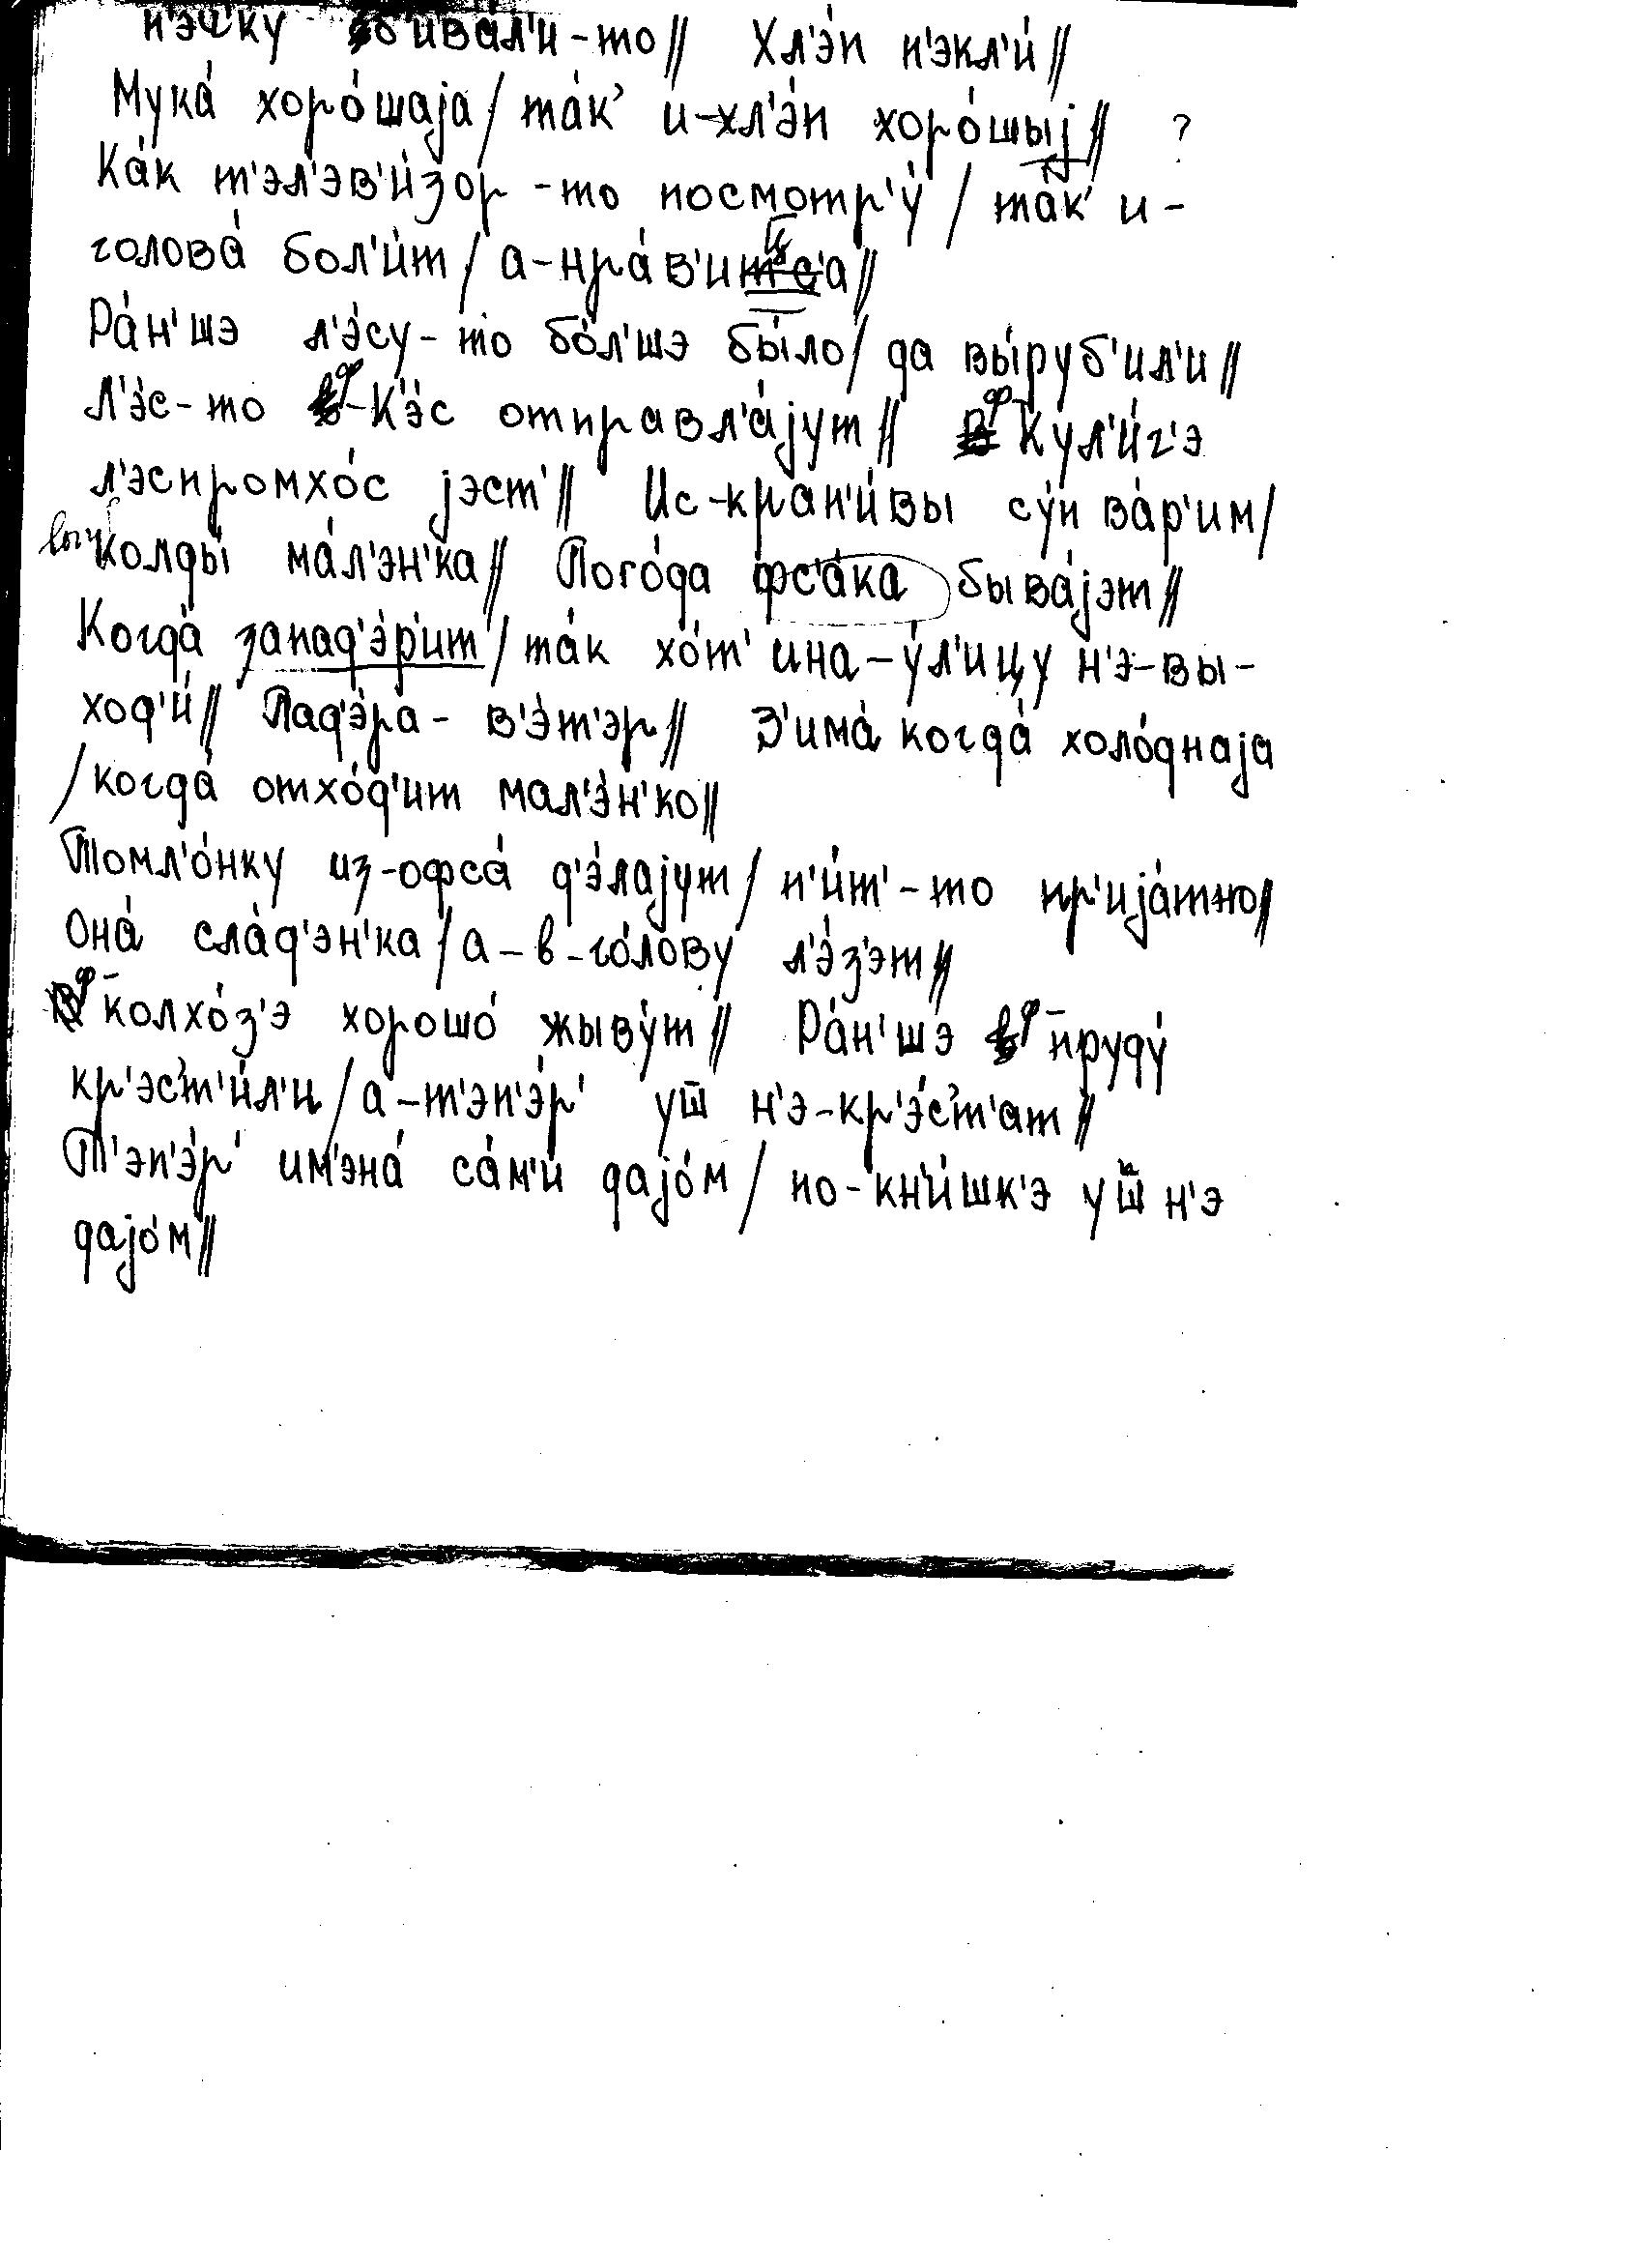 п'э́ч'ку бива́л'и-то// Хл'э́п п'экл'и́//
Мука́ хоро́шаја/ та́к' и-хл'э́п хоро́шыј// ?
Ка́к т'эл'эв'и́зор-то посмотр'у́/ та́к' и-
голова́ бол'и́т/ а-нра́в'ица//
Ра́н'шэ л'э́су-то бо́л'шэ бы́ло/ да вы́руб'ил'и//
Л'э́с-то ф-К'э́с отправл'а́јут// ф Кул'и́г'э
л'эспромхо́с јэст'// Ис-крап'и́вы су́п ва́р'им/
колды́ ма́л'эн'ка// Пого́да фс'а́ка быва́јэт//
Когда́ запад'э́р'ит/ та́к хо́т' ина-у́л'ицу н'э-вы-
ход'и́// Пад'э́ра- в'э́т'эр// З'има́ когда́ холо́днаја
/когда́ отхо́д'ит мал'э́н'ко//
Томл'о́нку из-офса́ д'э́лајут/ п'и́т'-то пр'ија́тно//
Она́ сла́д'эн'ка/ а-в-го́лову л'э́з'эт//
ф колхо́з'э хорошо́ жыву́т// Ра́н'шэ ф пруду́
кр'эс'т'и́л'и/ а-т'эп'э́р' уш н'э-кр'э́с'т'ат//
Т'эп'э́р' им'эна́ са́м'и дајо́м/ по-кн'и́шк'э уш н'э
дајо́м//